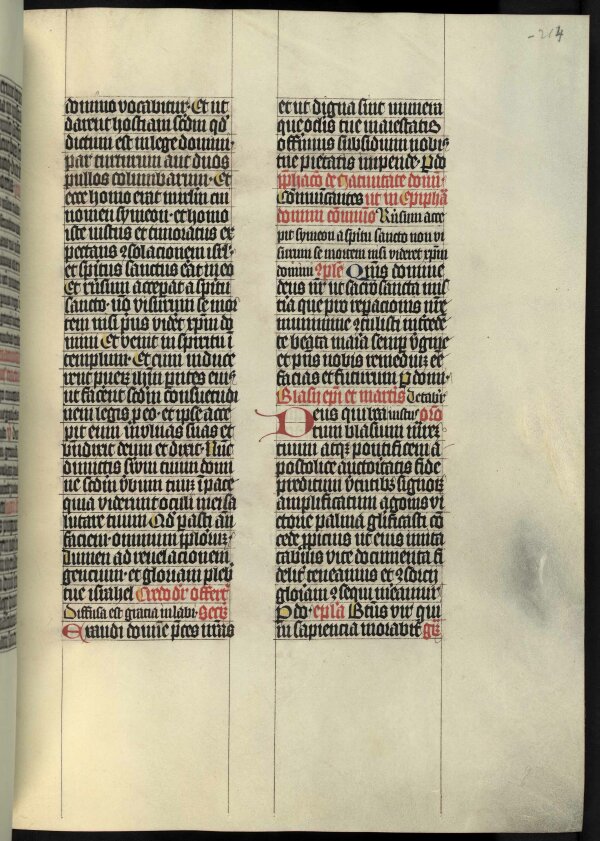 domino vocabitur. Et ut
darent hostiam scdm qd
dictum est in lege domini.
par turturum aut duos
pullos columbarum. Et
ecce homo erat in irlm cui
nomen symeon. et homo
iste iustus et timoratus ex
pectans ɔsolacionem isrl.
et spiritus sanctus erat in eo
Et rūsum accepat a spiritu
sancto. nō visurum se mor
tem nisi prius videret xpm do
mini Et venit in spiritu ī
templum. Et cum induce
rent puerū ihm parentes eius
ut facerent scdm consuetudi
nem legis p eo. et ipse acce
pit eum in vlnas suas et
bndixit deum et dixit. Nunc
dimittis servum tuum domi
ne scdm vbum tuum in pace
quia viderunt oculi mei sa
lutare tuum Qd pasti an
faciem. omnium pploruȝ
Lumen ad revelacionem
gencium. et gloriam pleb
tue israhel Credo dr offert
Diffusa est gracia in labi. Secr
Exaudi domine pces nras
-214
et ut digna sint munera
que oclis tue maiestatis
offerimus subsidium nobis
tue pietatis impende. P do
pphaco de Nativitate domi.
Comunicantes ut in Epiphā
domini cōmunio Rūsum acce
pit symeon a spiritu sancto non vi
surum se mortem nisi videret xpm
domini ɔple Quis domine
deus nr ut sacrosancta mis
teria que pro repacionis nre
munimine ɔtulisti intcede
te beata maria semp vgine
et pns nobis remedium ee
facias et futurum P domi.
Blasii epi et martiris Letabit.
Deus qui bea iustus oro
tum blasium mrem
tuum atq pontificem a
postolice auctoritatis fide
preditum virtutibus signorȝ
amplificatum agonis vi
ctorie palma glificasti cō
cede ppicius ut eius imita
tabilis vite documenta fi
delit teneamus et ɔsorciū
gloriam ɔsequi mereamur
P do. epla Beatus vir qui
in sapiencia morabit gr